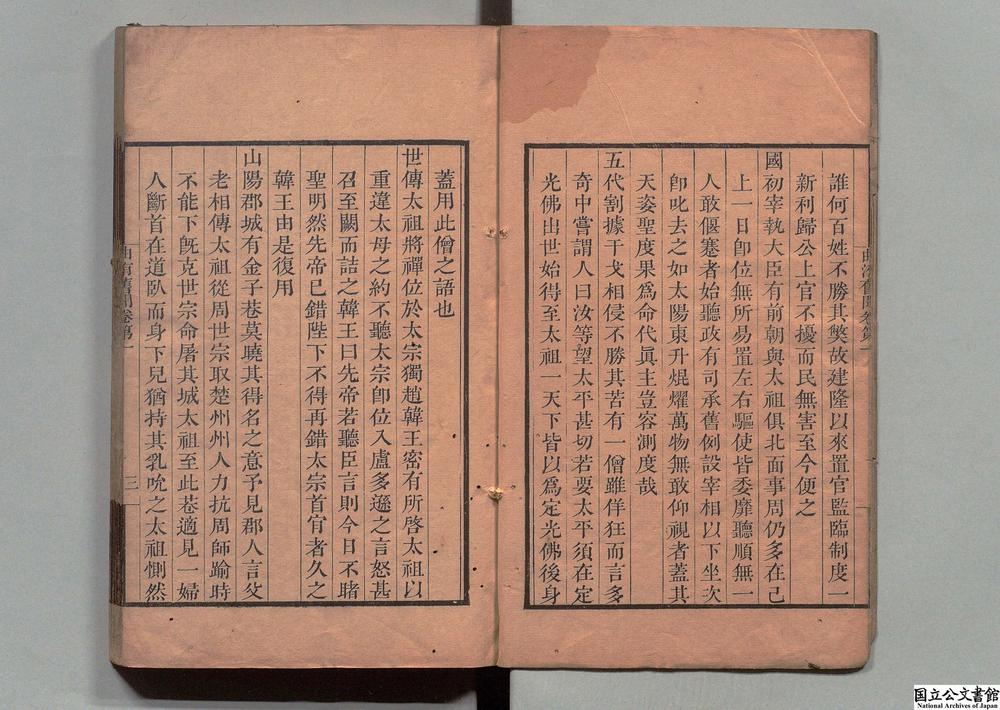 誰何百姓不勝其獘故建隆以來置官監臨制度一
新利歸公上官不擾而民無害至今便之
國初宰執大臣有前朝與太祖俱北面事周仍多在己
上一日卽位無所易置左右驅使皆委靡聽順無一
人敢偃蹇者始聽政有司承舊例設宰相以下坐次
卽叱去之如太陽東升焜燿萬物無敢仰視者蓋其
天姿聖度果爲命代眞主豈容測度哉
五代割據干戈相侵不勝其苦有一僧雖佯狂而言多
奇中嘗謂人曰汝等望太平甚切若要太平須在定
光佛出世始得至太祖一天下皆以爲定光佛後身
蓋用此僧之語也
世傳太祖將禪位於太宗獨趙韓王密有所啓太祖以
重違太母之約不聽太宗卽位入盧多遜之言怒甚
召至闕而詰之韓王曰先帝若聽臣言則今日不睹
聖明然先帝已錯陛下不得再錯太宗首官者久之
韓王由是復用
山陽郡城有金子巷莫曉其得名之意予見郡人言父
老相傳太祖從周世宗取楚州州人力抗周師踰時
不能下旣克世宗命屠其城太祖至此巷適見一婦
人斷首在道臥而身下兒猶持其乳吮之太祖惻然
曲洧舊聞卷第一
三
国立公文書館
National Archives of Japan